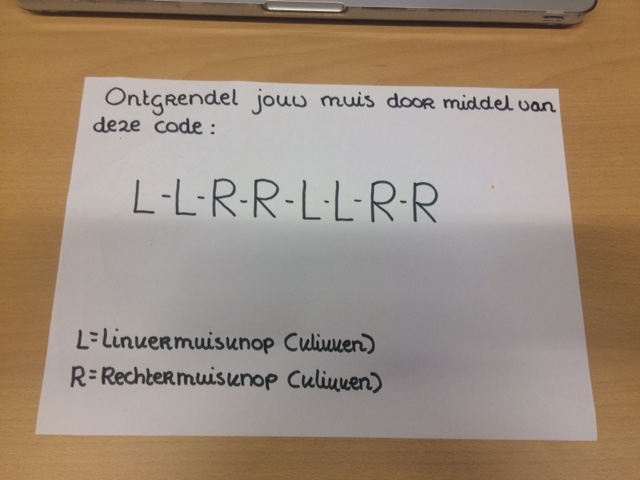 Ontgrendel jouw muis door middel van
deze code:
L-L-R-R-L-L-R-R
L=Linkermuisknop (klikken)
R=Rechtermuisknop (klikken)